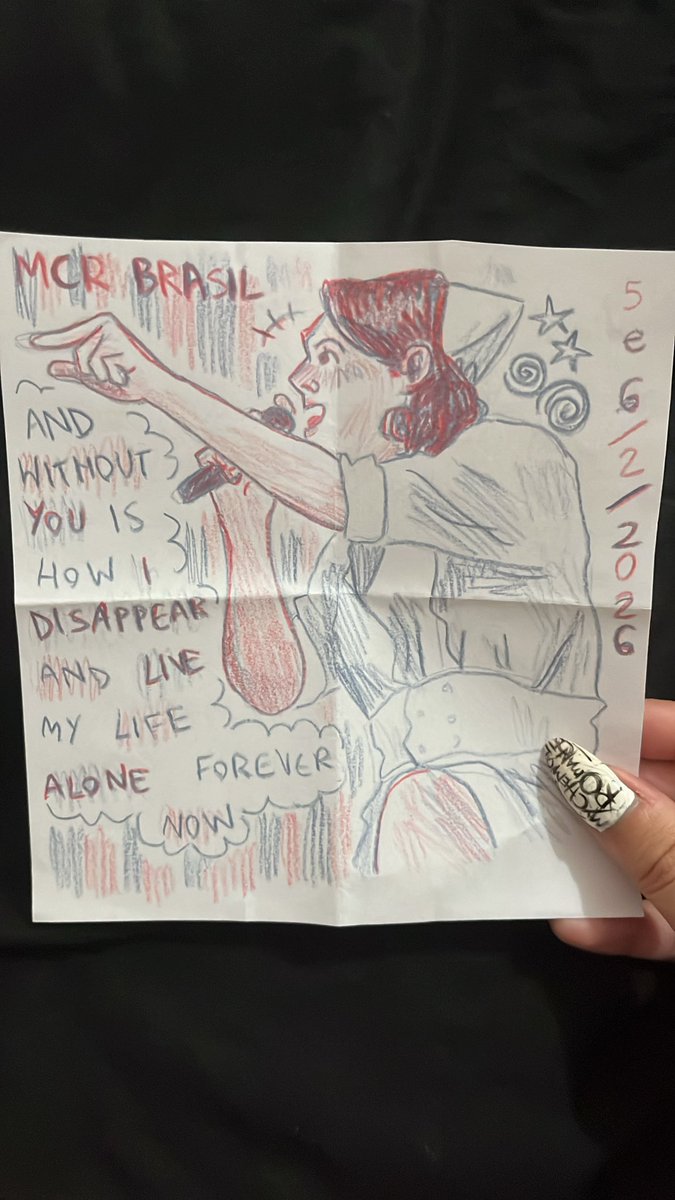 MCR BRASIL
5 e 6/2/2026
AND
WITHOUT
YOU IS
HOW I
DISAPPEAR
AND LIVE
MY LIFE
ALONE FOREVER
NOW
MY CHEMICAL
ROMANCE